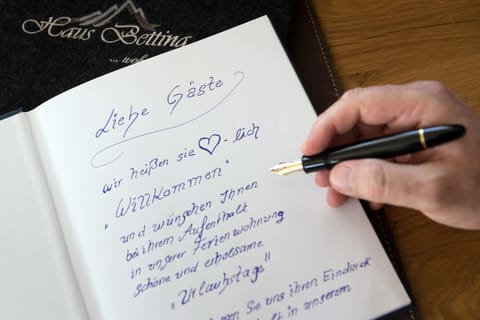 Haus Betting
Liebe Gäste
wir heißen sie ♡-lich
"Willkommen"
und wünschen Ihnen
bei ihrem Aufenthalt
in unserer Ferienwohnung
schöne und erholsame
"Urlaubstage"
Sie uns ihren Eindruck
in unserem